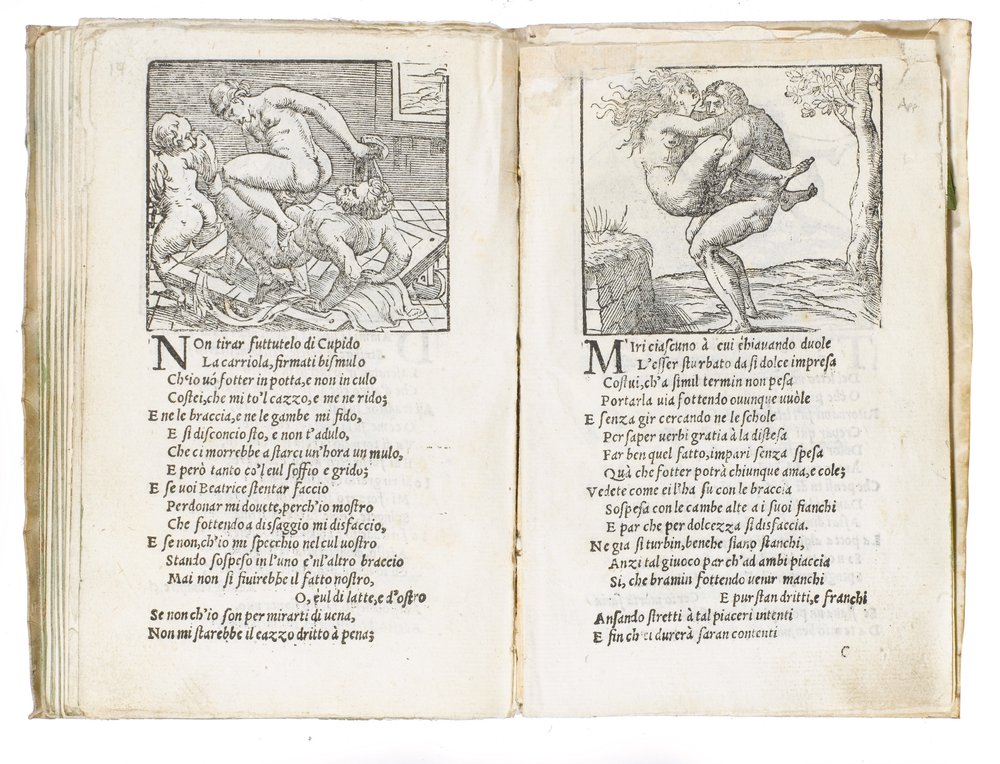 14
NOn tirar futtutelo di Cupido
La carriola, firmati bismulo
Ch'io uò fotter in potta, e non in culo
Costei, che mi to'l cazzo, e me ne rido;
E ne le braccia, e ne le gambe mi fido,
E si disconcio sto, e non t'adulo,
Che ci morrebbe a starci un'hora un mulo,
E però tanto co'l cul soffio e grido;
E se uoi Beatrice stentar faccio
Perdonar mi douete, perch'io mostro
Che fottendo a disaggio mi disfaccio,
E se non, ch'io mi specchio nel cul uostro
Stando sospeso in l'uno e'n l'altro braccio
Mai non si fiuirebbe il fatto nostro,
O, cul di latte, e d'ostro
Se non ch'io son per mirarti di uena,
Non mi starebbe il cazzo dritto à pena;
App
MIri ciascuno à cui chiauando duole
L'esser sturbato da si dolce impresa
Costui, ch'a simil termin non pesa
Portarla uia fottendo ouunque uuòle
E senza gir cercando ne le schole
Per saper uerbi gratia à la distesa
Far ben quel fatto, impari senza spesa
Quà che fotter potrà chiunque ama, e cole;
Vedete come ei l'ha su con le braccia
Sospesa con le cambe alte a i suoi fianchi
E par che per dolcezza si disfaccia.
Ne gia si turbin, benche siano stanchi,
Anzi tal giuoco par ch'ad ambi piaccia
Si, che bramin fottendo uenir manchi
E pur stan dritti, e franchi
Ansando stretti à tal piaceri intenti
E fin ch'ei durerà saran contenti
C